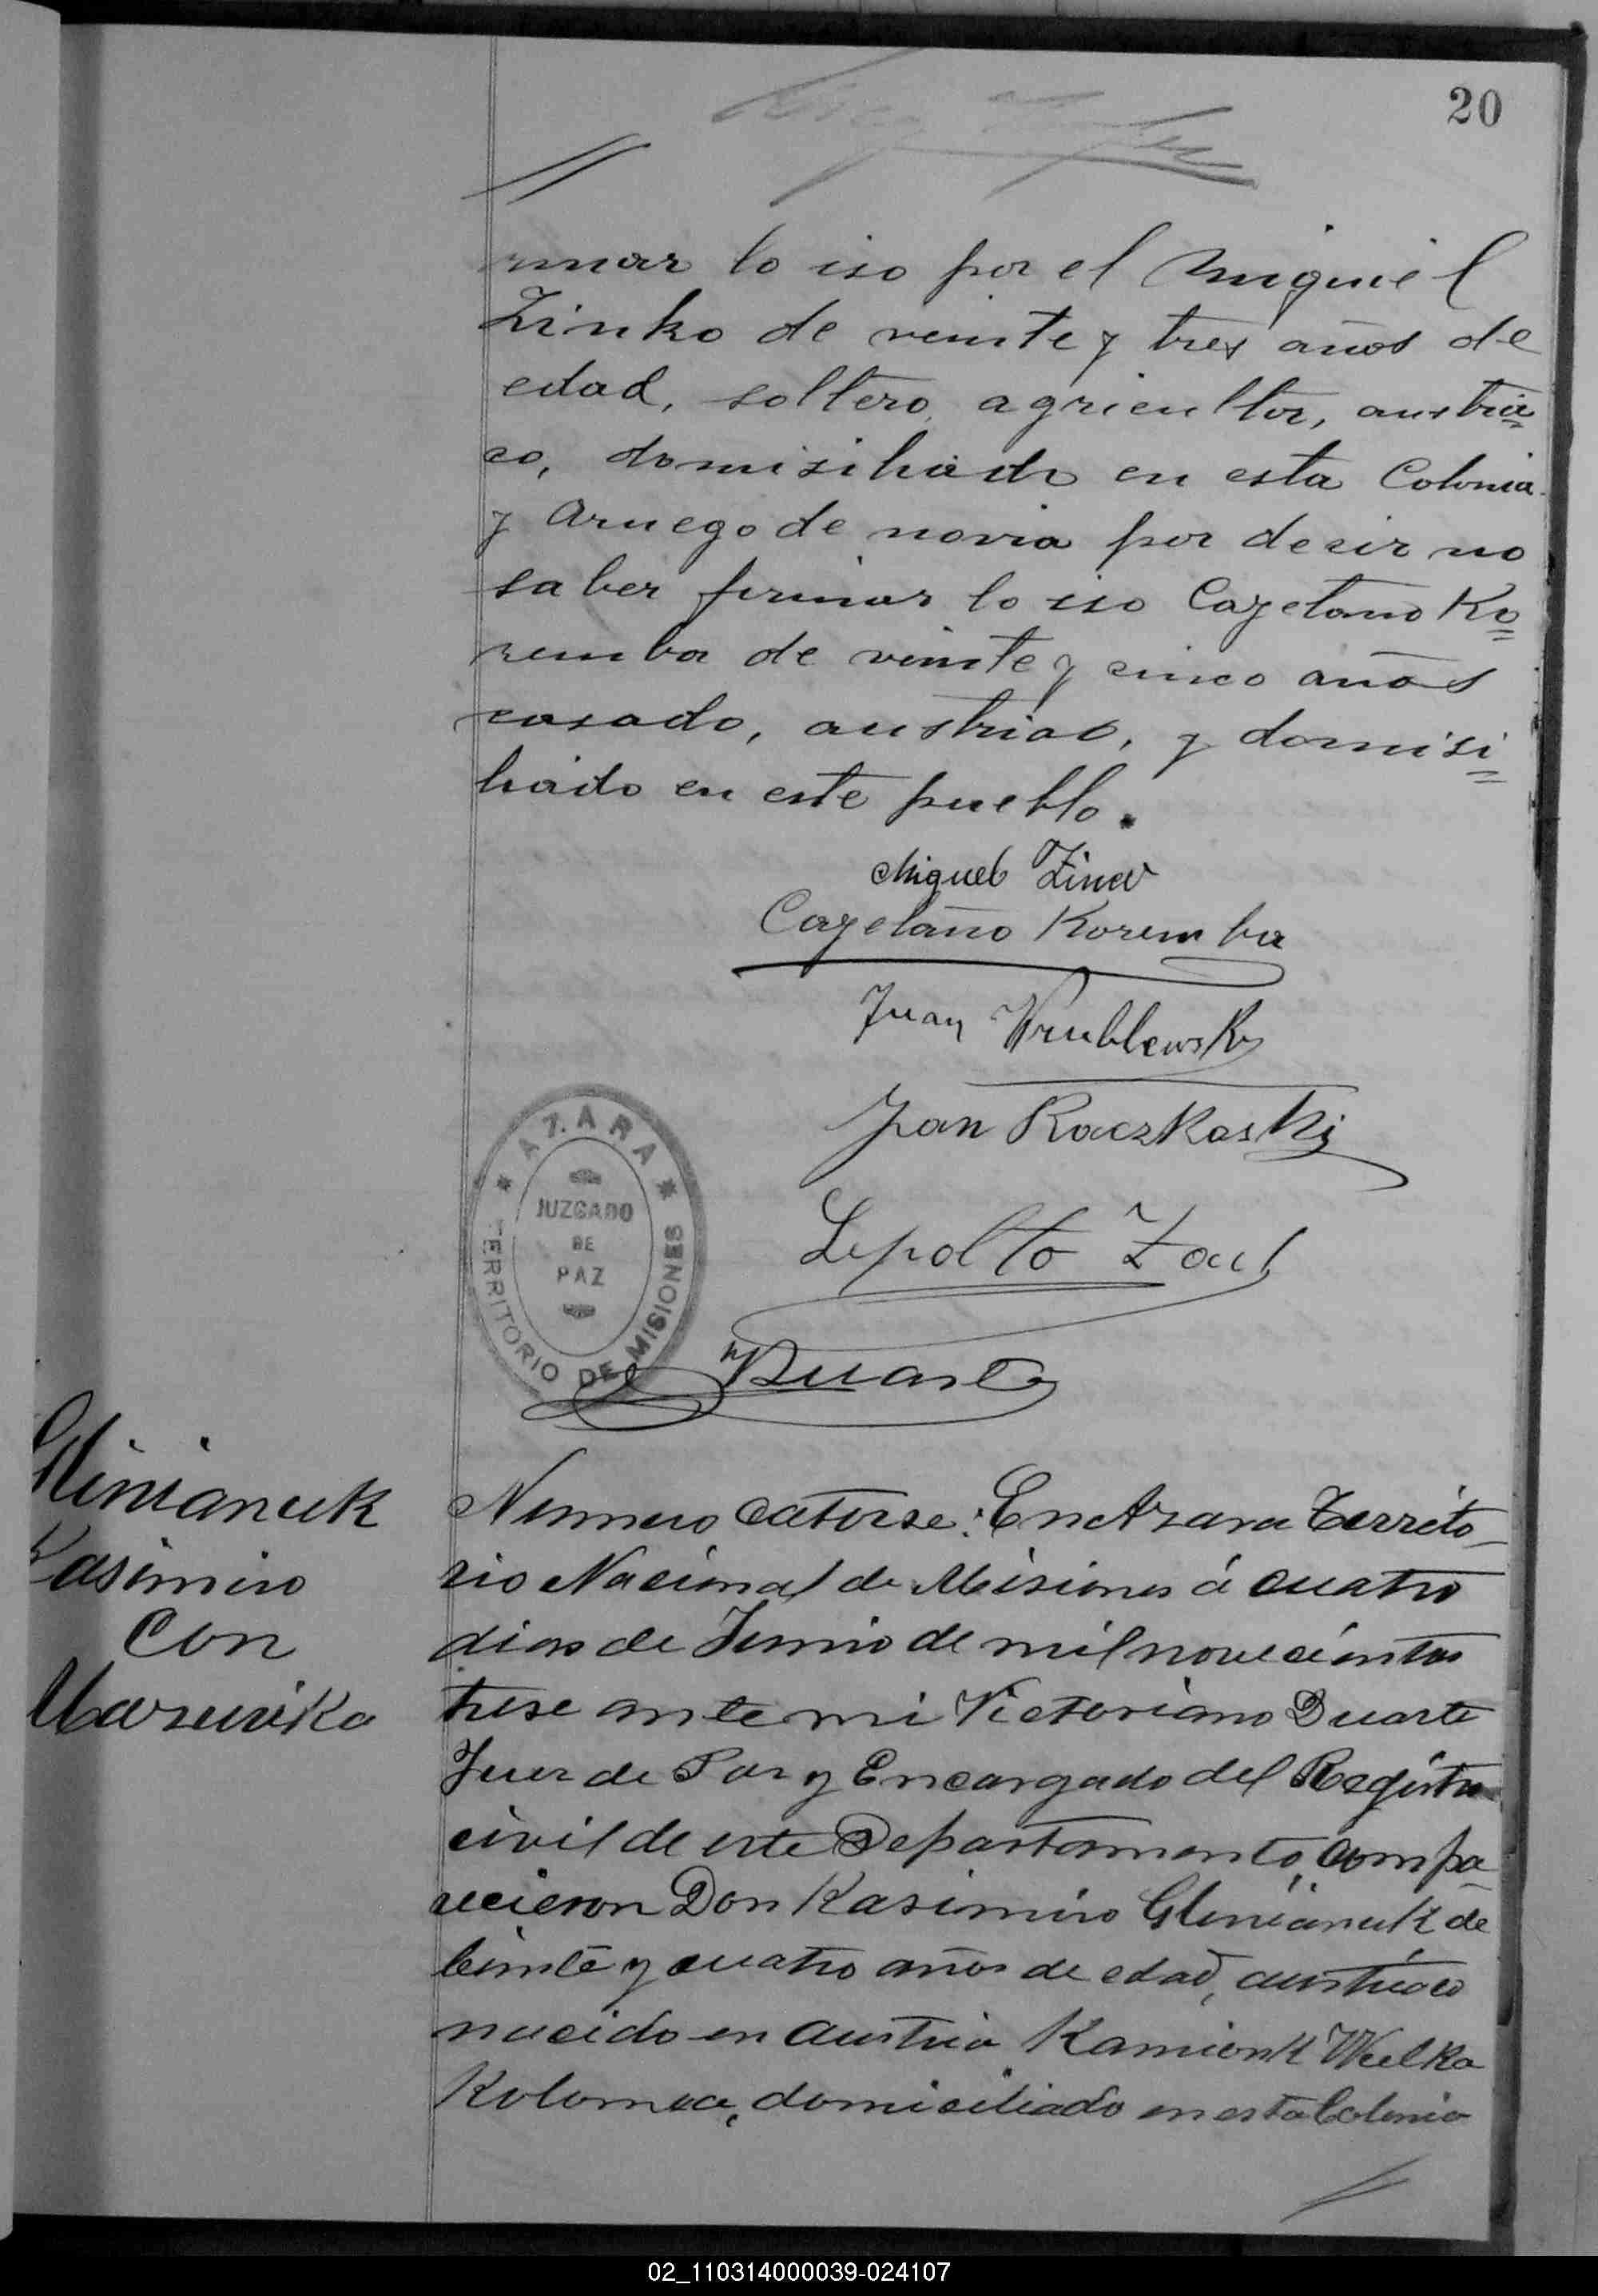 20
rmar lo iso por el Miguiel
Zinko de veinte y tres años de
edad, soltero, agricultor, austria=
co, domisiliado en esta Colonia
y Aruego de novia por decir no
saber firmar lo iso Cayetano Ko=
remba de veinte y cinco años
casado, austriao, y domisi=
liado en este pueblo.
Miguel
Cayetano Koremba
Juan Wrublewski
Jan Raczkoski
Lepolto
VDuarte
* AZARA *
JUZGADO
DE
PAZ
TERRITORIO DE MISIONES
Glinianuk
Kasimiro
Con
Numero catorse: En Azara Territo-
rio Nacional de Misiones á cuatro
dias de Junio de mil novecientos
trese ante mi Victoriano Duarte
Juez de Paz y Encargado del Registro
civil de este Departamento, compa-
recieron Don Kasimiro Glinianuk de
beinte y cuatro años de edad, austriaco
nacido en Austria Kamionk Wielka
Kolomea, domiciliado en esta Colonia
02_110314000039-024107